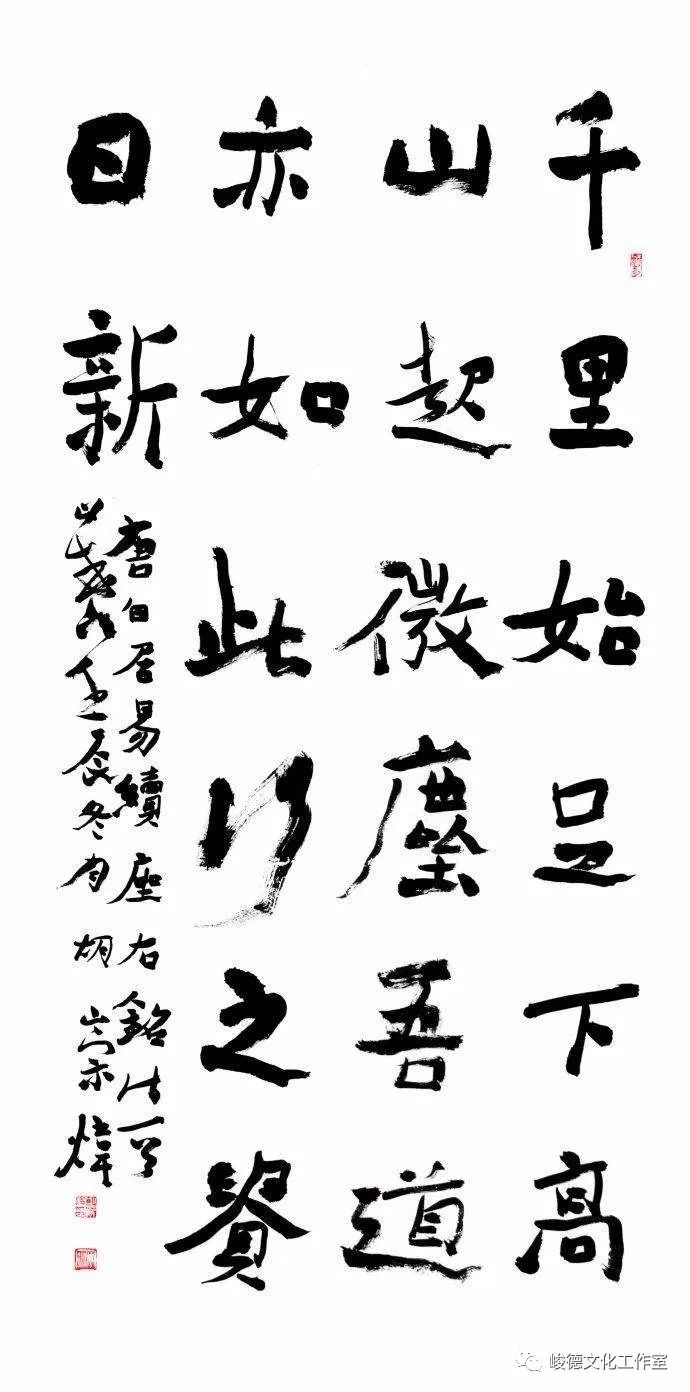 千里始足下高
山起微塵吾道
亦如此行之貴
日新
唐白居易續座右銘
壬辰冬月胡崇煒
峻德文化工作室